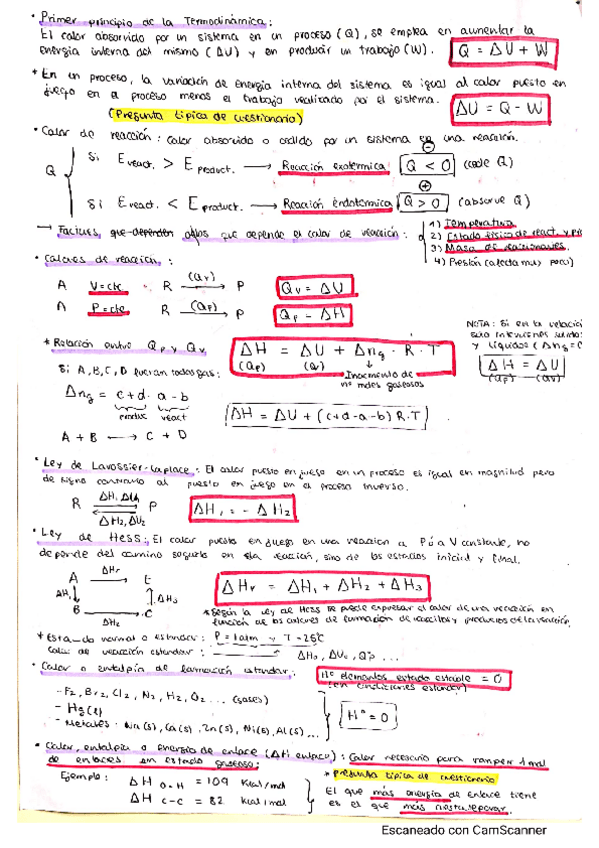 · Primer principio de la Termodinámica:
El calor absorvido por un sistema en un proceso (Q), se emplea en aumentar la
energía interna del mismo (ΔU) y en producir un trabajo (W). Q = ΔU + W
* En un proceso, la variación de energía interna del sistema es igual al calor puesto en
juego en el proceso menos el trabajo realizado por el sistema. ΔU = Q - W
(Pregunta típica de cuestionario)
· Calor de reacción: calor absorvido o cedido por un sistema en una reacción.
Q
Si E react. > E product. → Reacción exotérmica Q < 0 (cede Q)
Si E react. < E product. → Reacción endotérmica Q > 0 (absorve Q)
→ Factores de los que depende el calor de reacción:
1) Temperatura
2) Estado físico de react. y pro
3) Masa de reaccionantes
4) Presión (afecta muy poco)
· Calores de reacción:
A V=cte R (Qv) → P Qv = ΔU
A P=cte R (Qp) → P Qp = ΔH
NOTA: Si en la
solo intervienen
y líquidos (Δng = 0
ΔH = ΔU
(Qp) (Qv)
* Relación entre Qp y Qv ΔH = ΔU + Δng · R · T
(Qp) (Qv) Incremento de
nº moles gaseosos
Si A, B, C, D fueran todos gas:
Δng = c+d - a-b
produc react
ΔH = ΔU + (c+d-a-b) R·T
A + B ←→ C + D
· Ley de Lavossier-Laplace: El calor puesto en juego en un proceso es igual en magnitud pero
de signo contrario al puesto en juego en el proceso inverso.
R ΔH1, ΔU1 P
ΔH2, ΔU2
ΔH1 = - ΔH2
· Ley de Hess: El calor puesto en juego en una reaccion a P ó a V constante, no
depende del camino seguido en esa reacción, sino de los estados inicial y final.
A ΔHr → E
ΔH1 ΔH3
B → C
ΔH2
ΔHr = ΔH1 + ΔH2 + ΔH3
* Según la ley de Hess se puede expresar el calor de una reacción en
función de los calores de formación de reactivos y productos de la reacción
* Estado normal o estandar: P = 1 atm y T = 25ºC
Calor de reacción estandar: → ΔH0, ΔU0, Qp ...
· Calor o entalpía de formación estandar: Hº elementos estado estable = 0
(en condiciones estandar)
- F2, Br2, Cl2, N2, H2, O2 ... (gases)
- Hg (l)
- Metales: Na (s), Ca (s), Zn (s), Ni (s), Al (s) ...
Hº = 0
· Calor, entalpía o energía de enlace (ΔH enlace): Calor necesario para romper 1 mol
de enlaces en estado gaseoso:
* pregunta típica de cuestionario
Ejemplo: ΔH O-H = 109 Kcal/mol
ΔH C-C = 82 Kcal/mol
El que más energía de enlace tiene
es el que más cuesta separar.
Escaneado con CamScanner